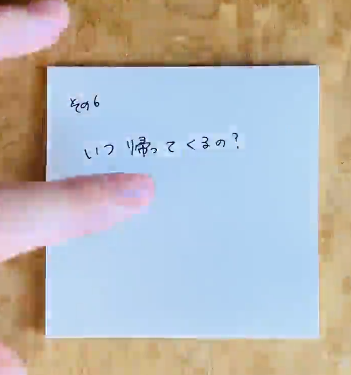 その6
いつ帰ってくるの?